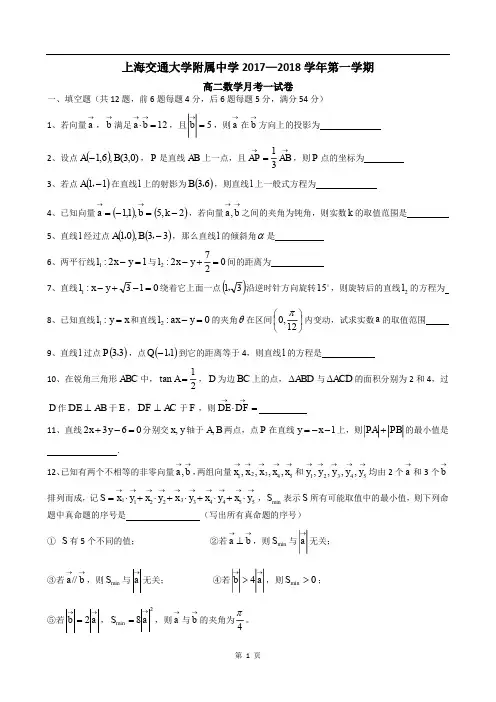 上海交通大学附属中学2017—2018学年第一学期
高二数学月考一试卷
一、填空题（共12题，前6题每题4分，后6题每题5分，满分54分）
1、若向量a→，b→满足a→·b→=12，且|b→|=5，则a→在b→方向上的投影为
2、设点A(-1,6),B(3,0)，P是直线AB上一点，且AP→=1/3AB→，则P点的坐标为
3、若点A(1,-1)在直线l上的射影为B(3,6)，则直线l上一般式方程为
4、已知向量a→=(-1,1),b→=(5,k-2)，若向量a→,b→之间的夹角为钝角，则实数k的取值范围是
5、直线l经过点A(1,0),B(3,-3)，那么直线l的倾斜角α是
6、两平行线l₁:2x-y=1与l₂:2x-y+7/2=0间的距离为
7、直线l₁:x-y+√3-1=0绕着它上面一点(1,√3)沿逆时针方向旋转15°，则旋转后的直线l₂的方程为
8、已知直线l₁:y=x和直线l₂:ax-y=0的夹角θ在区间(0,π/12)内变动，试求实数a的取值范围
9、直线l过点P(3,3)，点Q(-1,1)到它的距离等于4，则直线l的方程是
10、在锐角三角形ABC中，tan A=1/2，D为边BC上的点，ΔABD与ΔACD的面积分别为2和4，过
D作DE⊥AB于E，DF⊥AC于F，则DE→·DF→=
11、直线2x+3y-6=0分别交x,y轴于A,B两点，点P在直线y=-x-1上，则|PA|+|PB|的最小值是
．
12、已知有两个不相等的非零向量a→,b→,两组向量x₁→,x₂→,x₃→,x₄→,x₅→和y₁→,y₂→,y₃→,y₄→,y₅→均由2个a→和3个b→
排列而成，记S=x₁→·y₁→+x₂→·y₂→+x₃→·y₃→+x₄→·y₄→+x₅→·y₅→，Smin表示S所有可能取值中的最小值，则下列命
题中真命题的序号是 （写出所有真命题的序号）
① S有5个不同的值； ②若a→⊥b→，则Smin与|a→|无关；
③若a→//b→，则Smin与|a→|无关； ④若|b→|>4|a→|，则Smin>0；
⑤若|b→|=2|a→|，Smin=8|a→|²，则a→与b→的夹角为π/4。
第 1 页